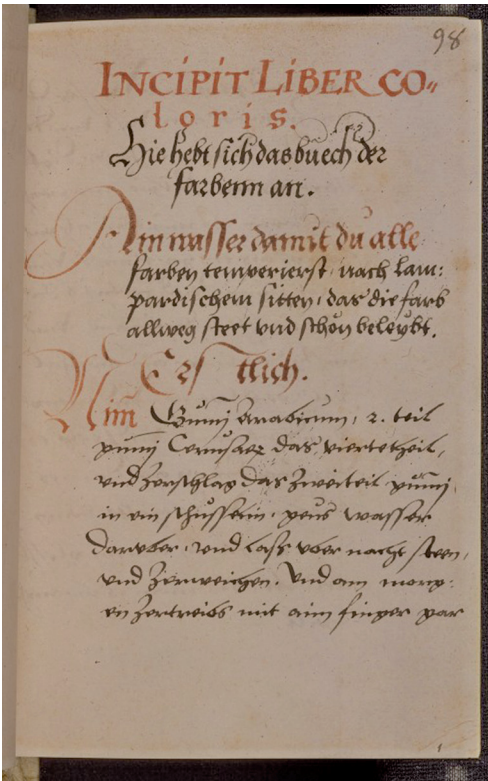 98
INCIPIT LIBER CO„
loris.
Hie hebt sich das buech der
farbenn an.
Ain wasser damit du alle
farben temperierst, nach lam:
pardischem sitten, das die farb
allweg steet vnd schön beleybt.
Erstlich.
Nim Gummj Arabicum, 2. teil
gummj das viertetheil,
vnd zerschlag das zweiteil gummj
in ein schüsselin, geus wasser
daruber, vnd lass vber nacht steen,
vnd zerweichen. Vnd am morg:
en zertreibs mit aim finger gar